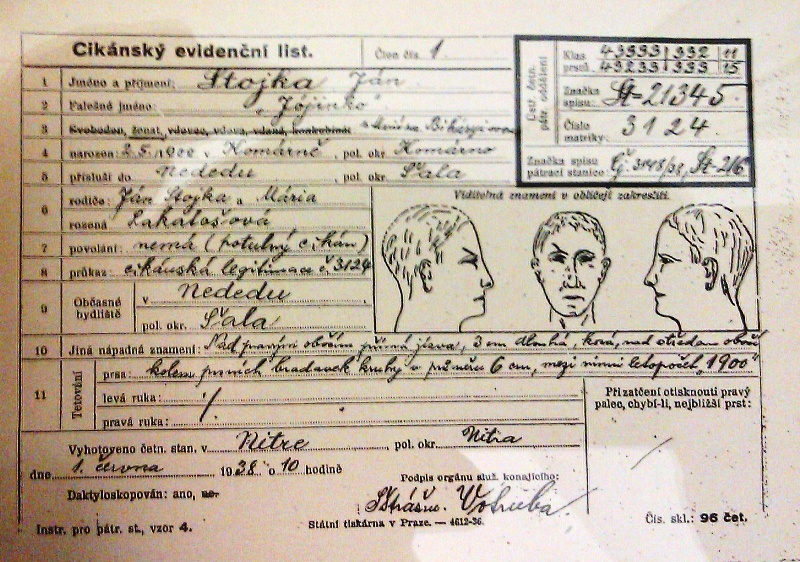 Cikánský evidenční list.
Člen čís. 1
1 Jméno a příjmení: Stojka Ján
2 Falešné jméno: „Jójinko“
3 Svoboden, ženat, vdovec, vdova, vdaná, konkubinát
4 narozen: 2.5.1900 v Komárně, pol. okr. Komárno
5 přísluší do Nededu, pol. okr. Šala
6 rodiče: Ján Stojka a Mária
rozená Lakatošová
7 povolání: nemá (potulný cikán)
8 průkaz: cikánská legitimace č. 3124
9 Občasné bydliště
v Nededu
pol. okr. Šala
10 Jiná nápadná znamení: Nad pravým obočím přímá jizva, 3 cm dlouhá, kosá, nad středem obočí
11 Tetování
prsa: kolem prsních bradavek kruhy v průměru 6 cm, mezi nimi letopočet „1900“
levá ruka:
pravá ruka:
Vyhotoveno četn. stan. v Nitre pol. okr. Nitra
dne 1. června 1938 o 10 hodině
Daktyloskopován: ano, ne.
Podpis orgánu služ. konajícího:
Votruba
Instr. pro pátr. st., vzor 4.
Státní tiskárna v Praze. — 4612-36.
Ústř. četn. pátr. oddělení
Klas prstů. 43333 332 11
43233 333 15
Značka spisu: Št-21345
Číslo matriky: 3124
Značka spisu pátrací stanice: Čj. 3148/38, Št-216
Viditelná znamení v obličeji zakresliti.
Při zatčení otisknouti pravý
palec, chybí-li, nejbližší prst:
Čís. skl.: 96 čet.